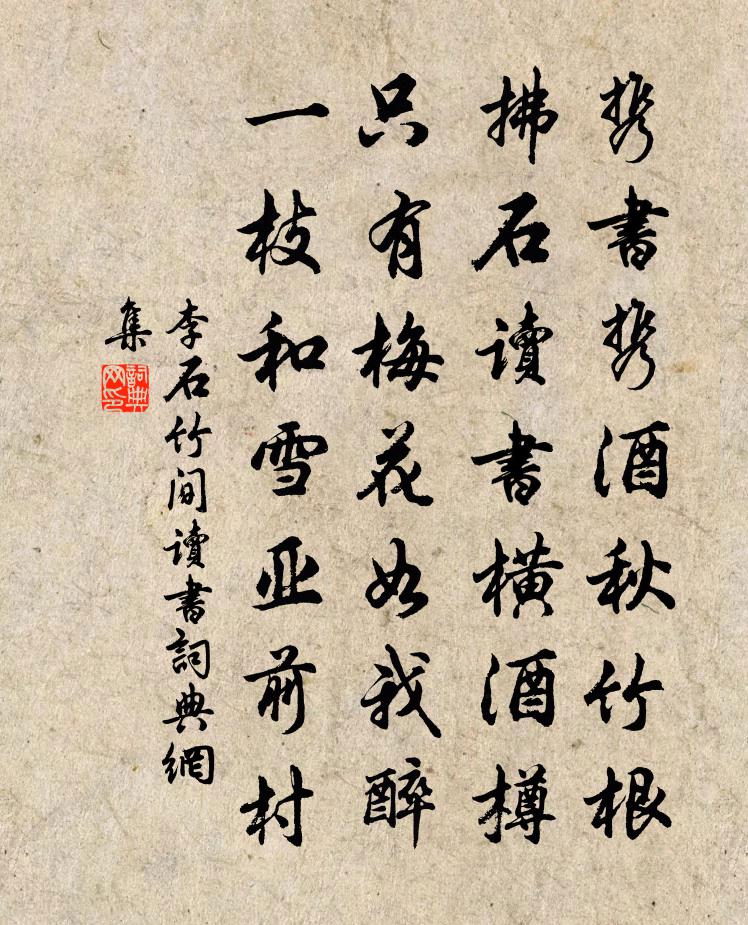 携書携酒秋竹根
拂石讀書橫酒樽
只有梅花如我醉
一枝和雪亚前村
李石竹间讀書詞典網
集
詞典网印